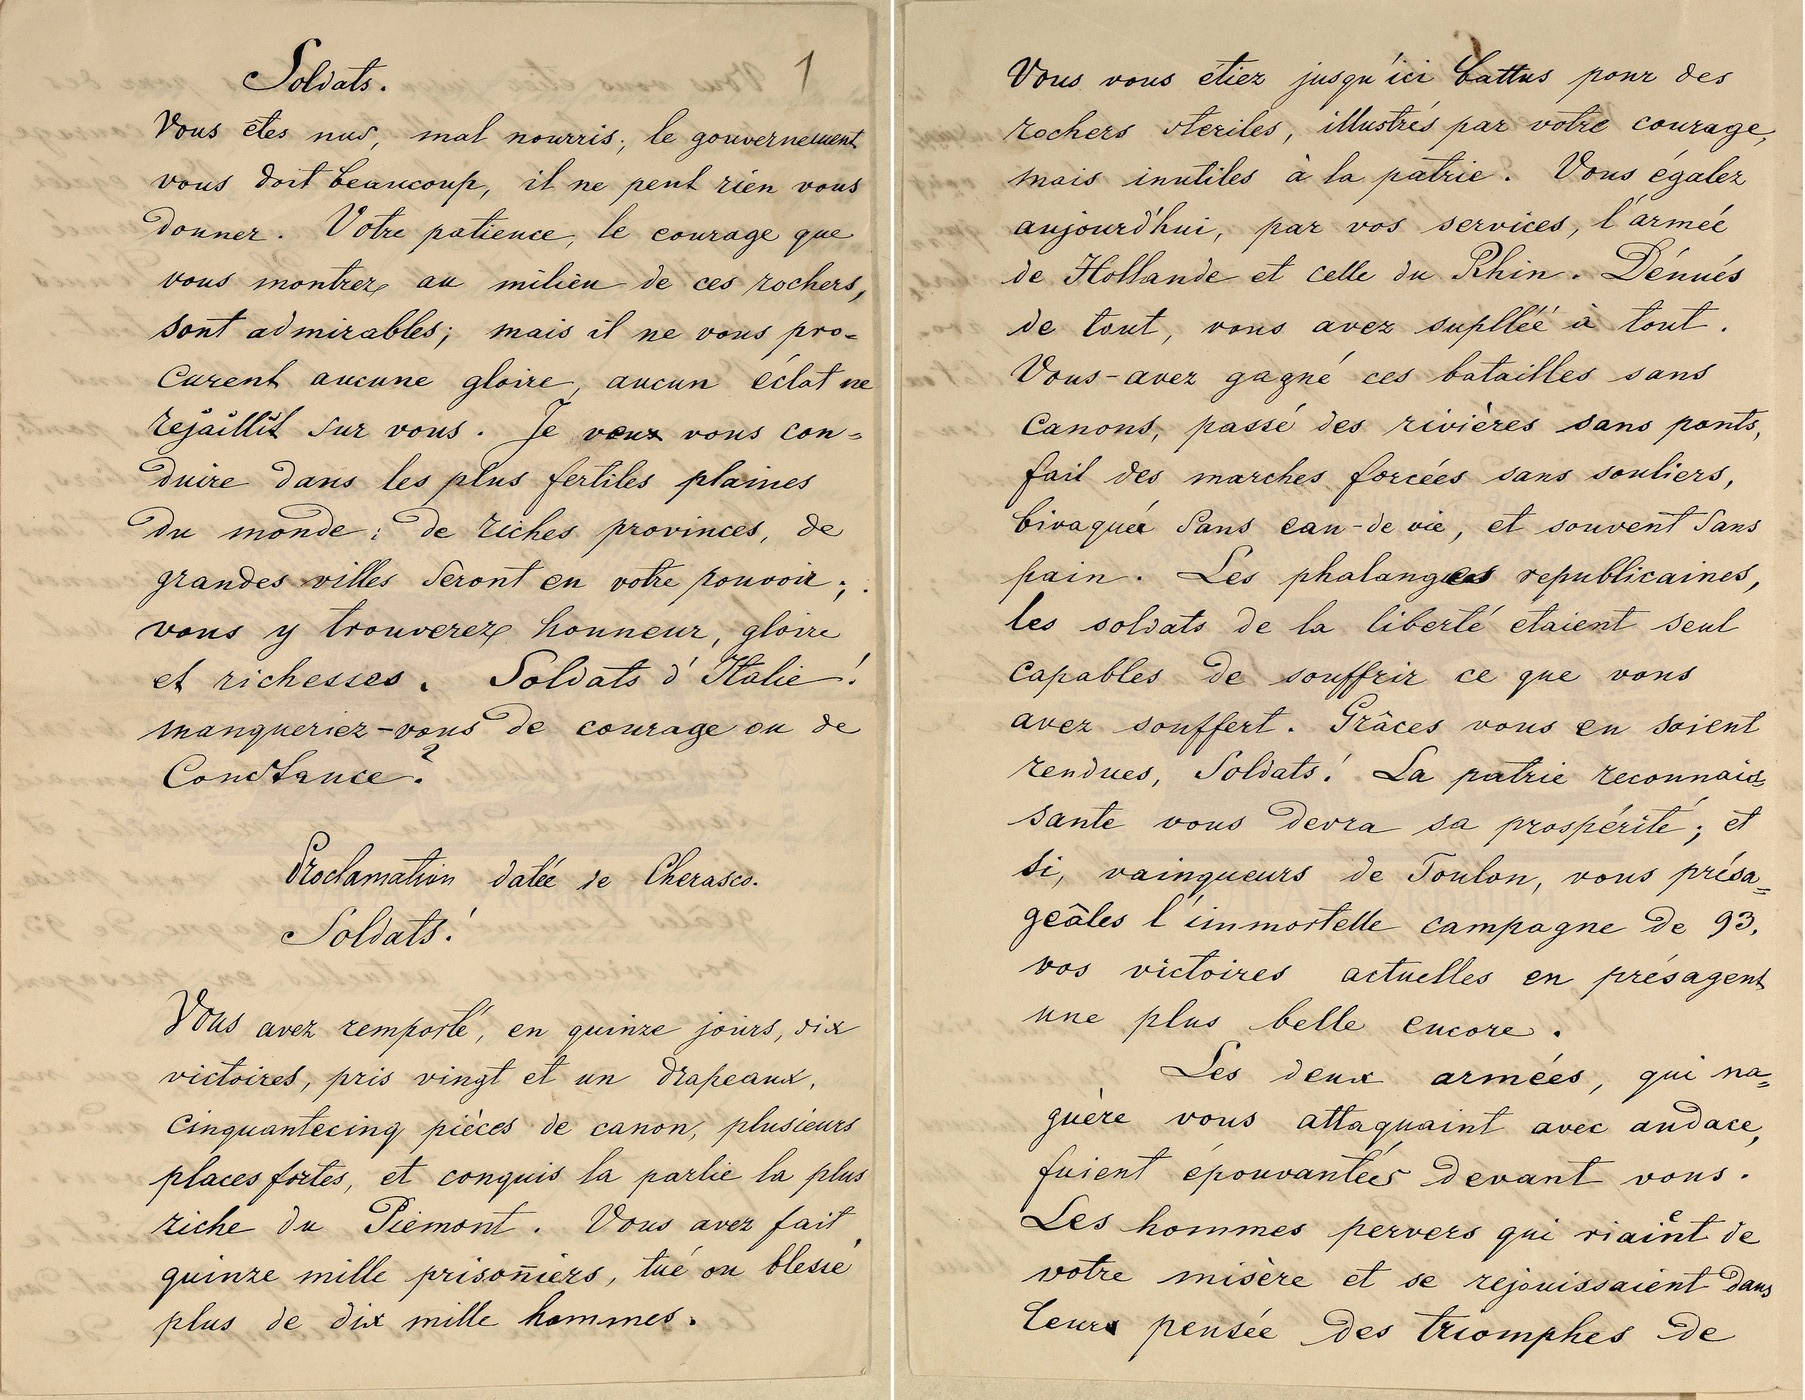 1
Soldats.
Vous êtes nus, mal nourris; le gouvernement
vous doit beaucoup, il ne peut rien vous
donner. Votre patience, le courage que
vous montrez au milieu de ces rochers,
sont admirables; mais il ne vous pro-
curent aucune gloire, aucun éclat ne
rejaillit sur vous. Je veux vous con-
duire dans les plus fertiles plaines
du monde: de riches provinces, de
grandes villes seront en votre pouvoir;
vous y trouverez honneur, gloire
et richesses. Soldats d'Italie!
manqueriez-vous de courage ou de
Constance?
Proclamation datée de Cherasco.
Soldats!
Vous avez remporté, en quinze jours, six
victoires, pris vingt et un drapeaux,
cinquantecinq pièces de canon, plusieurs
places fortes, et conquis la partie la plus
riche du Piémont. Vous avez fait
quinze mille prisoñiers, tué ou blessé
plus de dix mille hommes.
Vous vous étiez jusqu'ici battus pour des
rochers steriles, illustrés par votre courage,
mais inutiles à la patrie. Vous égalez
aujourd'hui, par vos services, l'armée
de Hollande et celle du Rhin. Dénués
de tout, vous avez suplléé à tout.
Vous-avez gagné ces batailles sans
canons, passé des rivières sans ponts,
fait des marches forcées sans souliers,
bivaqué sans eau-de vie, et souvent sans
pain. Les phalanges republicaines,
les soldats de la liberté etaient seul
capables de souffrir ce que vous
avez souffert. Grâces vous en soient
rendues, Soldats! La patrie reconnais-
sante vous devra sa prospérité; et
si, vainqueurs de Toulon, vous présa=
geâtes l'immortelle campagne de 93,
vos victoires actuelles en présagent
une plus belle encore.
Les deux armées, qui na=
guère vous attaquaint avec audace,
fuient épouvantées devant vous.
Les hommes pervers qui riaient de
votre misère et se rejouissaient dans
leurs pensée des triomphes de